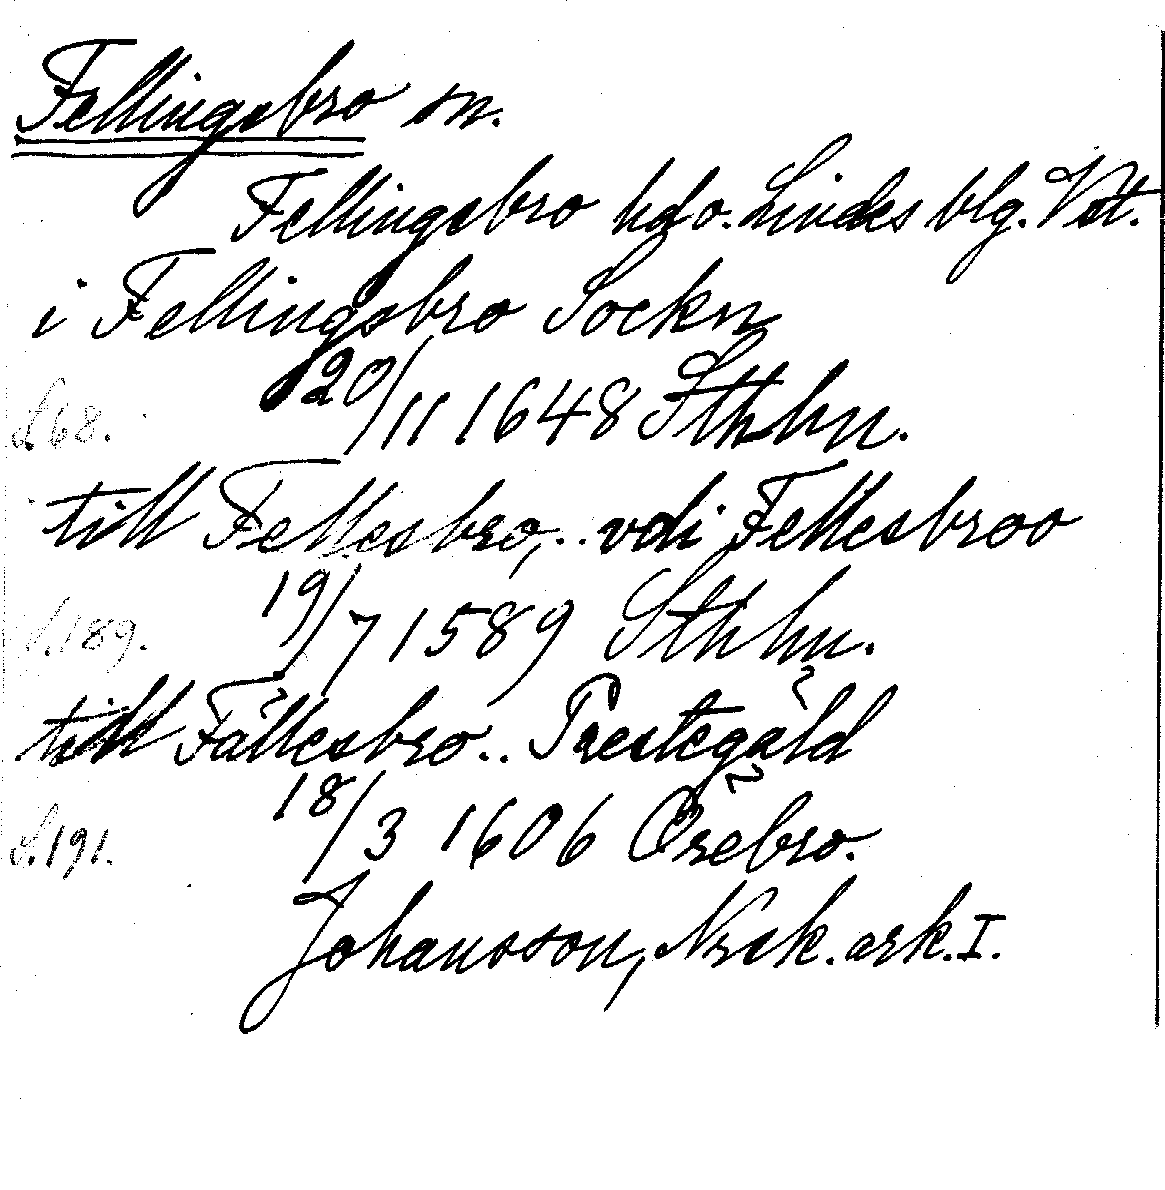 Fellingsbro sn.
Fellingsbro hd o. Lindes blg. Vstm.
i Fellingsbro Sockn
S. 68. 20/11 1648 Sthlm.
till Fellesbro, .. vdi Fellesbroo
S. 189. 19/7 1589 Sthlm.
till Fällesbro.. Prestegäld
S. 191. 18/3 1606 Örebro.
Johansson, Nrsk. ark. I.